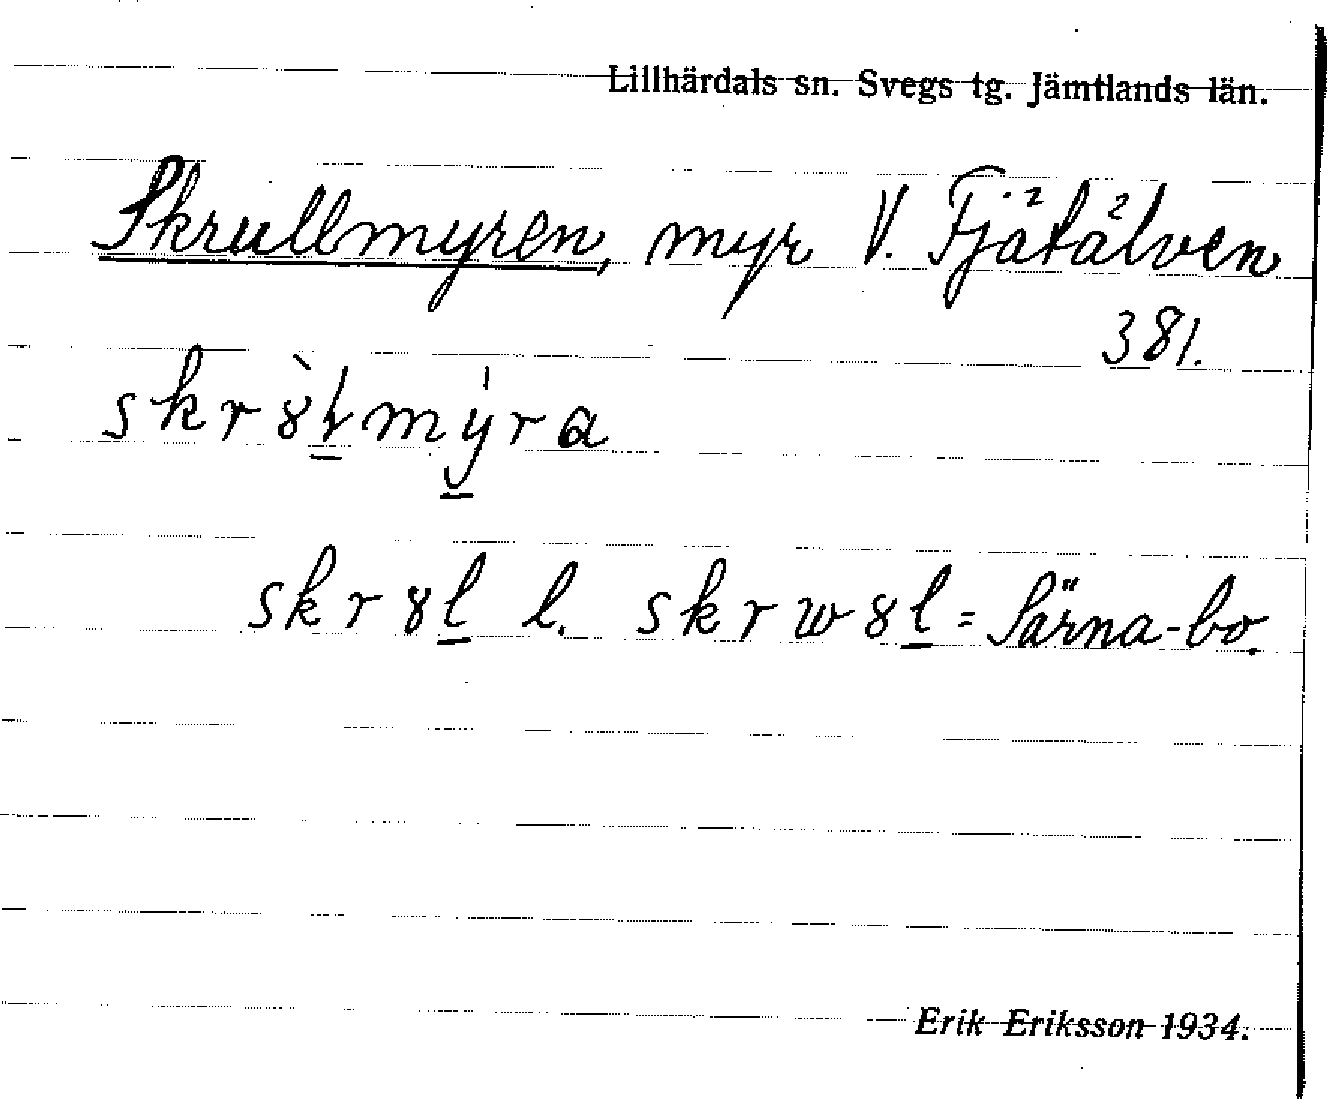 Lillhärdals sn. Svegs tg. Jämtlands län.
Skrullmyren, myr V. Fjätälven
381.
skr8̀l̲mý̲ra
skr8l̲ l. skrw8l̲ = Särna-bo.
Erik Eriksson 1934.